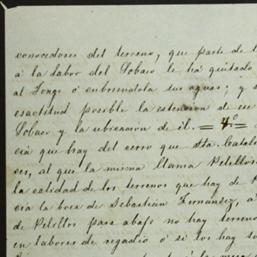 conocedores del terreno, que parte de l
á la Labor del Tobaco le há quitado
al Longo ó cubriendola sus aguas; y s
esactitud posible la estencion de ese
Tobaco y la ubicacion de él. = 4º
cia que hay del cerro que Dta. Catalo
es, al que la misma llama Pelillos
la calidad de los terrenos que hay de
cia la boca de Sebastián Fernández, á
de Pelillos para abajo no hay terreno
en labores de regadío ó si los hay so